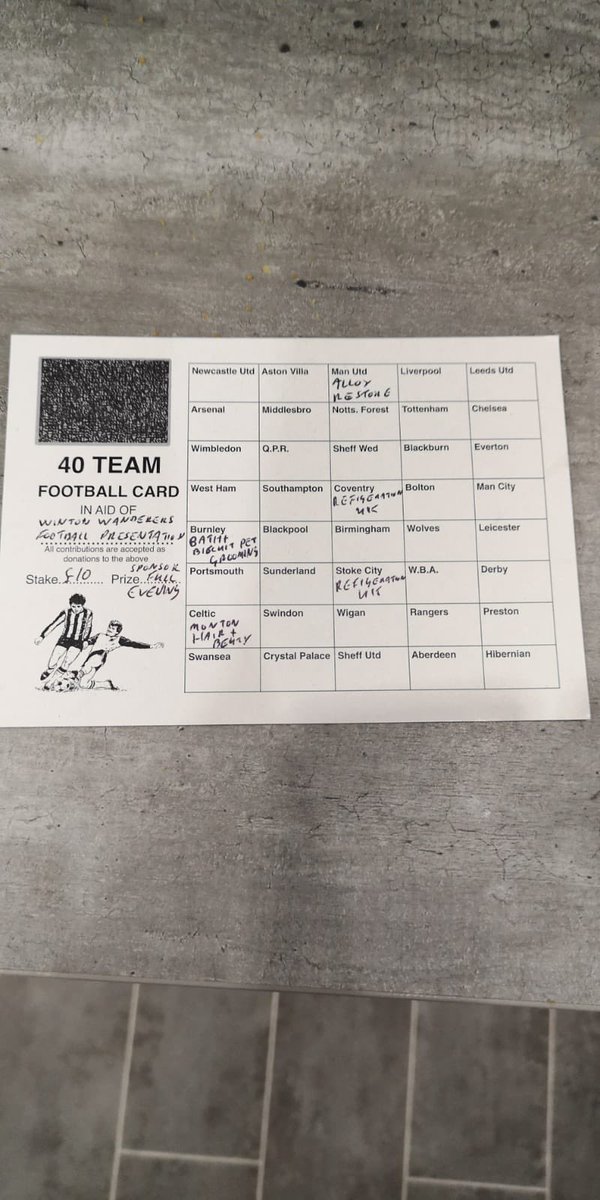 40 TEAM
FOOTBALL CARD
IN AID OF
WINTON WANDERERS
FOOTBALL PRESENTATION
All contributions are accepted as
donations to the above
Stake £10 Prize SPONSOR
FULL
EVENING
Newcastle Utd Aston Villa Man Utd Liverpool Leeds Utd
ALLOY
RESTORE
Arsenal Middlesbro Notts. Forest Tottenham Chelsea
Wimbledon Q.P.R. Sheff Wed Blackburn Everton
West Ham Southampton Coventry Bolton Man City
REFIGERATION
UK
Burnley Blackpool Birmingham Wolves Leicester
BISCUIT PET
GROOMING
Portsmouth Sunderland Stoke City W.B.A. Derby
REFIGERATION
UK
Celtic Swindon Wigan Rangers Preston
MONTON
HAIR +
BEAUTY
Swansea Crystal Palace Sheff Utd Aberdeen Hibernian